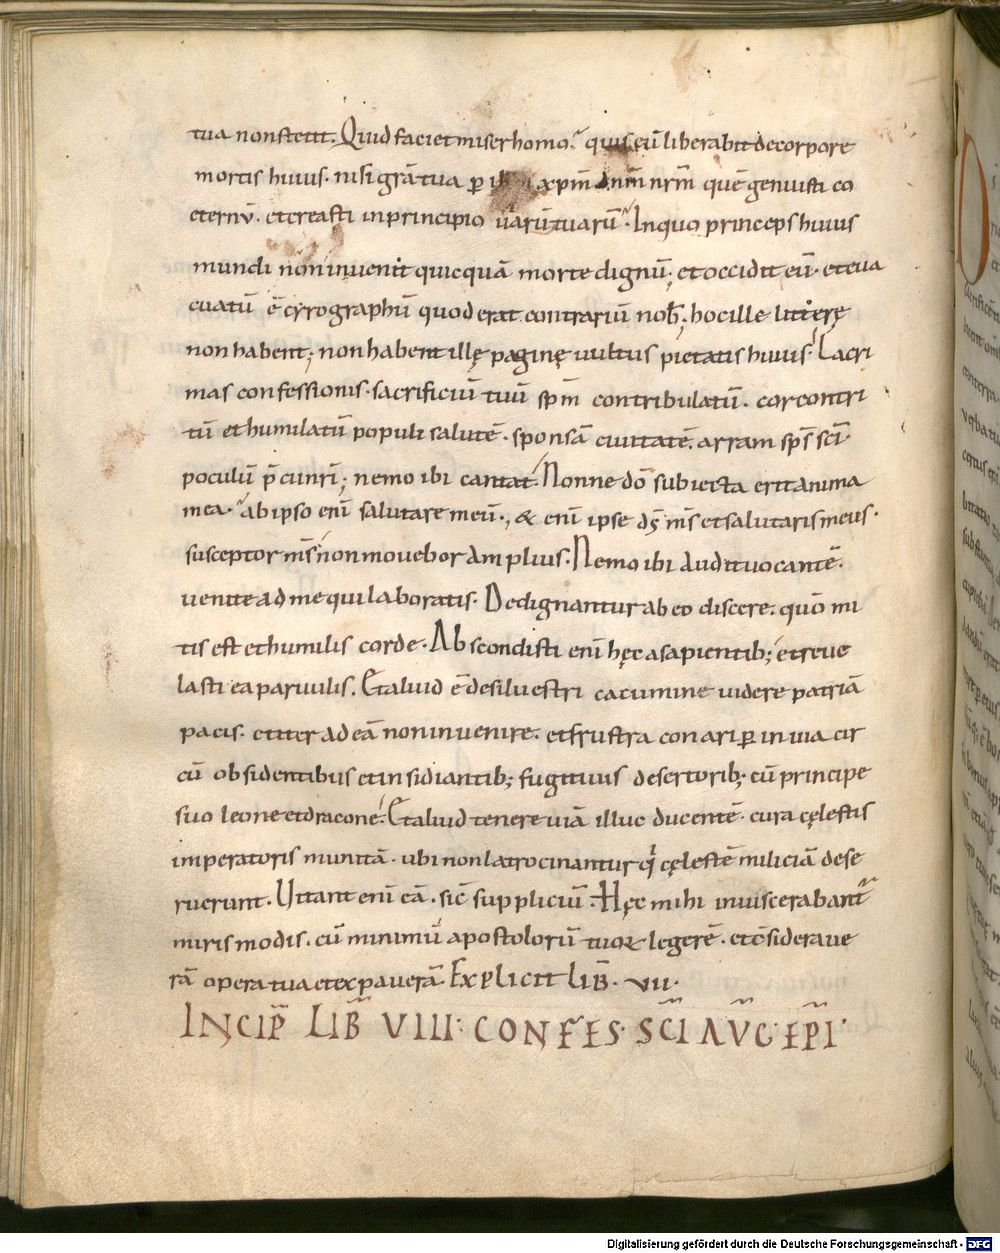 tua nonstetit. Quid faciet miser homo? quis eũ liberabit de corpore
mortis huius. nisi grã tua p xpm dnm nrm quẽ genuisti co
eternũ. et creasti in principio uiarũ tuarũ. In quo princeps huius
mundi non inuenit quicquã morte dignũ; et occidit eũ. et eua
cuatũ ẽ cyrographũ quod erat contrarium nob; hoc ille litterę
non habent; non habent illę paginę uultus pietatis huius. Lacri
mas confessionis. sacrificiũ tuũ spm contribulatũ. cor contri
tũ et humilatũ populi salutẽ. sponsã ciuitatẽ. arram sps sci.
poculũ p̃cii nri; nemo ibi cantat. Nonne dõ subiecta erit anima
mea. ab ipso enĩ salutare meũ., & enĩ ipse ds ms et salutaris meus.
susceptor ms non mouebor amplius. Nemo ibi audit uocantẽ.
uenite ad me qui laboratis. Dedignantur ab eo discere. quõ mi
tis est et humilis corde. Abscondisti enĩ hęc a sapientib; et reue
lasti ea paruulis. Et aliud ẽ de siluestri cacumine uidere patriã
pacis. et iter ad eã non inuenire. et frustra conari p inuia cir
cũ obsidentibus et insidiantib; fugitiuis desertorib; cũ principe
suo leone et dracone. Et aliud tenere uiã illuc ducentẽ. cura cęlestis
imperatoris munitã. ubi non latrocinantur qi cęlestẽ miliciã dese
ruerunt. Uitant enĩ eã. sic supplicium. Hęc mihi inuiscerabant
miris modis. cũ minimũ apostolorũ tuoꝝ legerẽ. et cõsideraue
rã opera tua et expauerã. Explicit lib. vii.
INCIP LIB VIII. CONFES. SCI AVG. EPI.